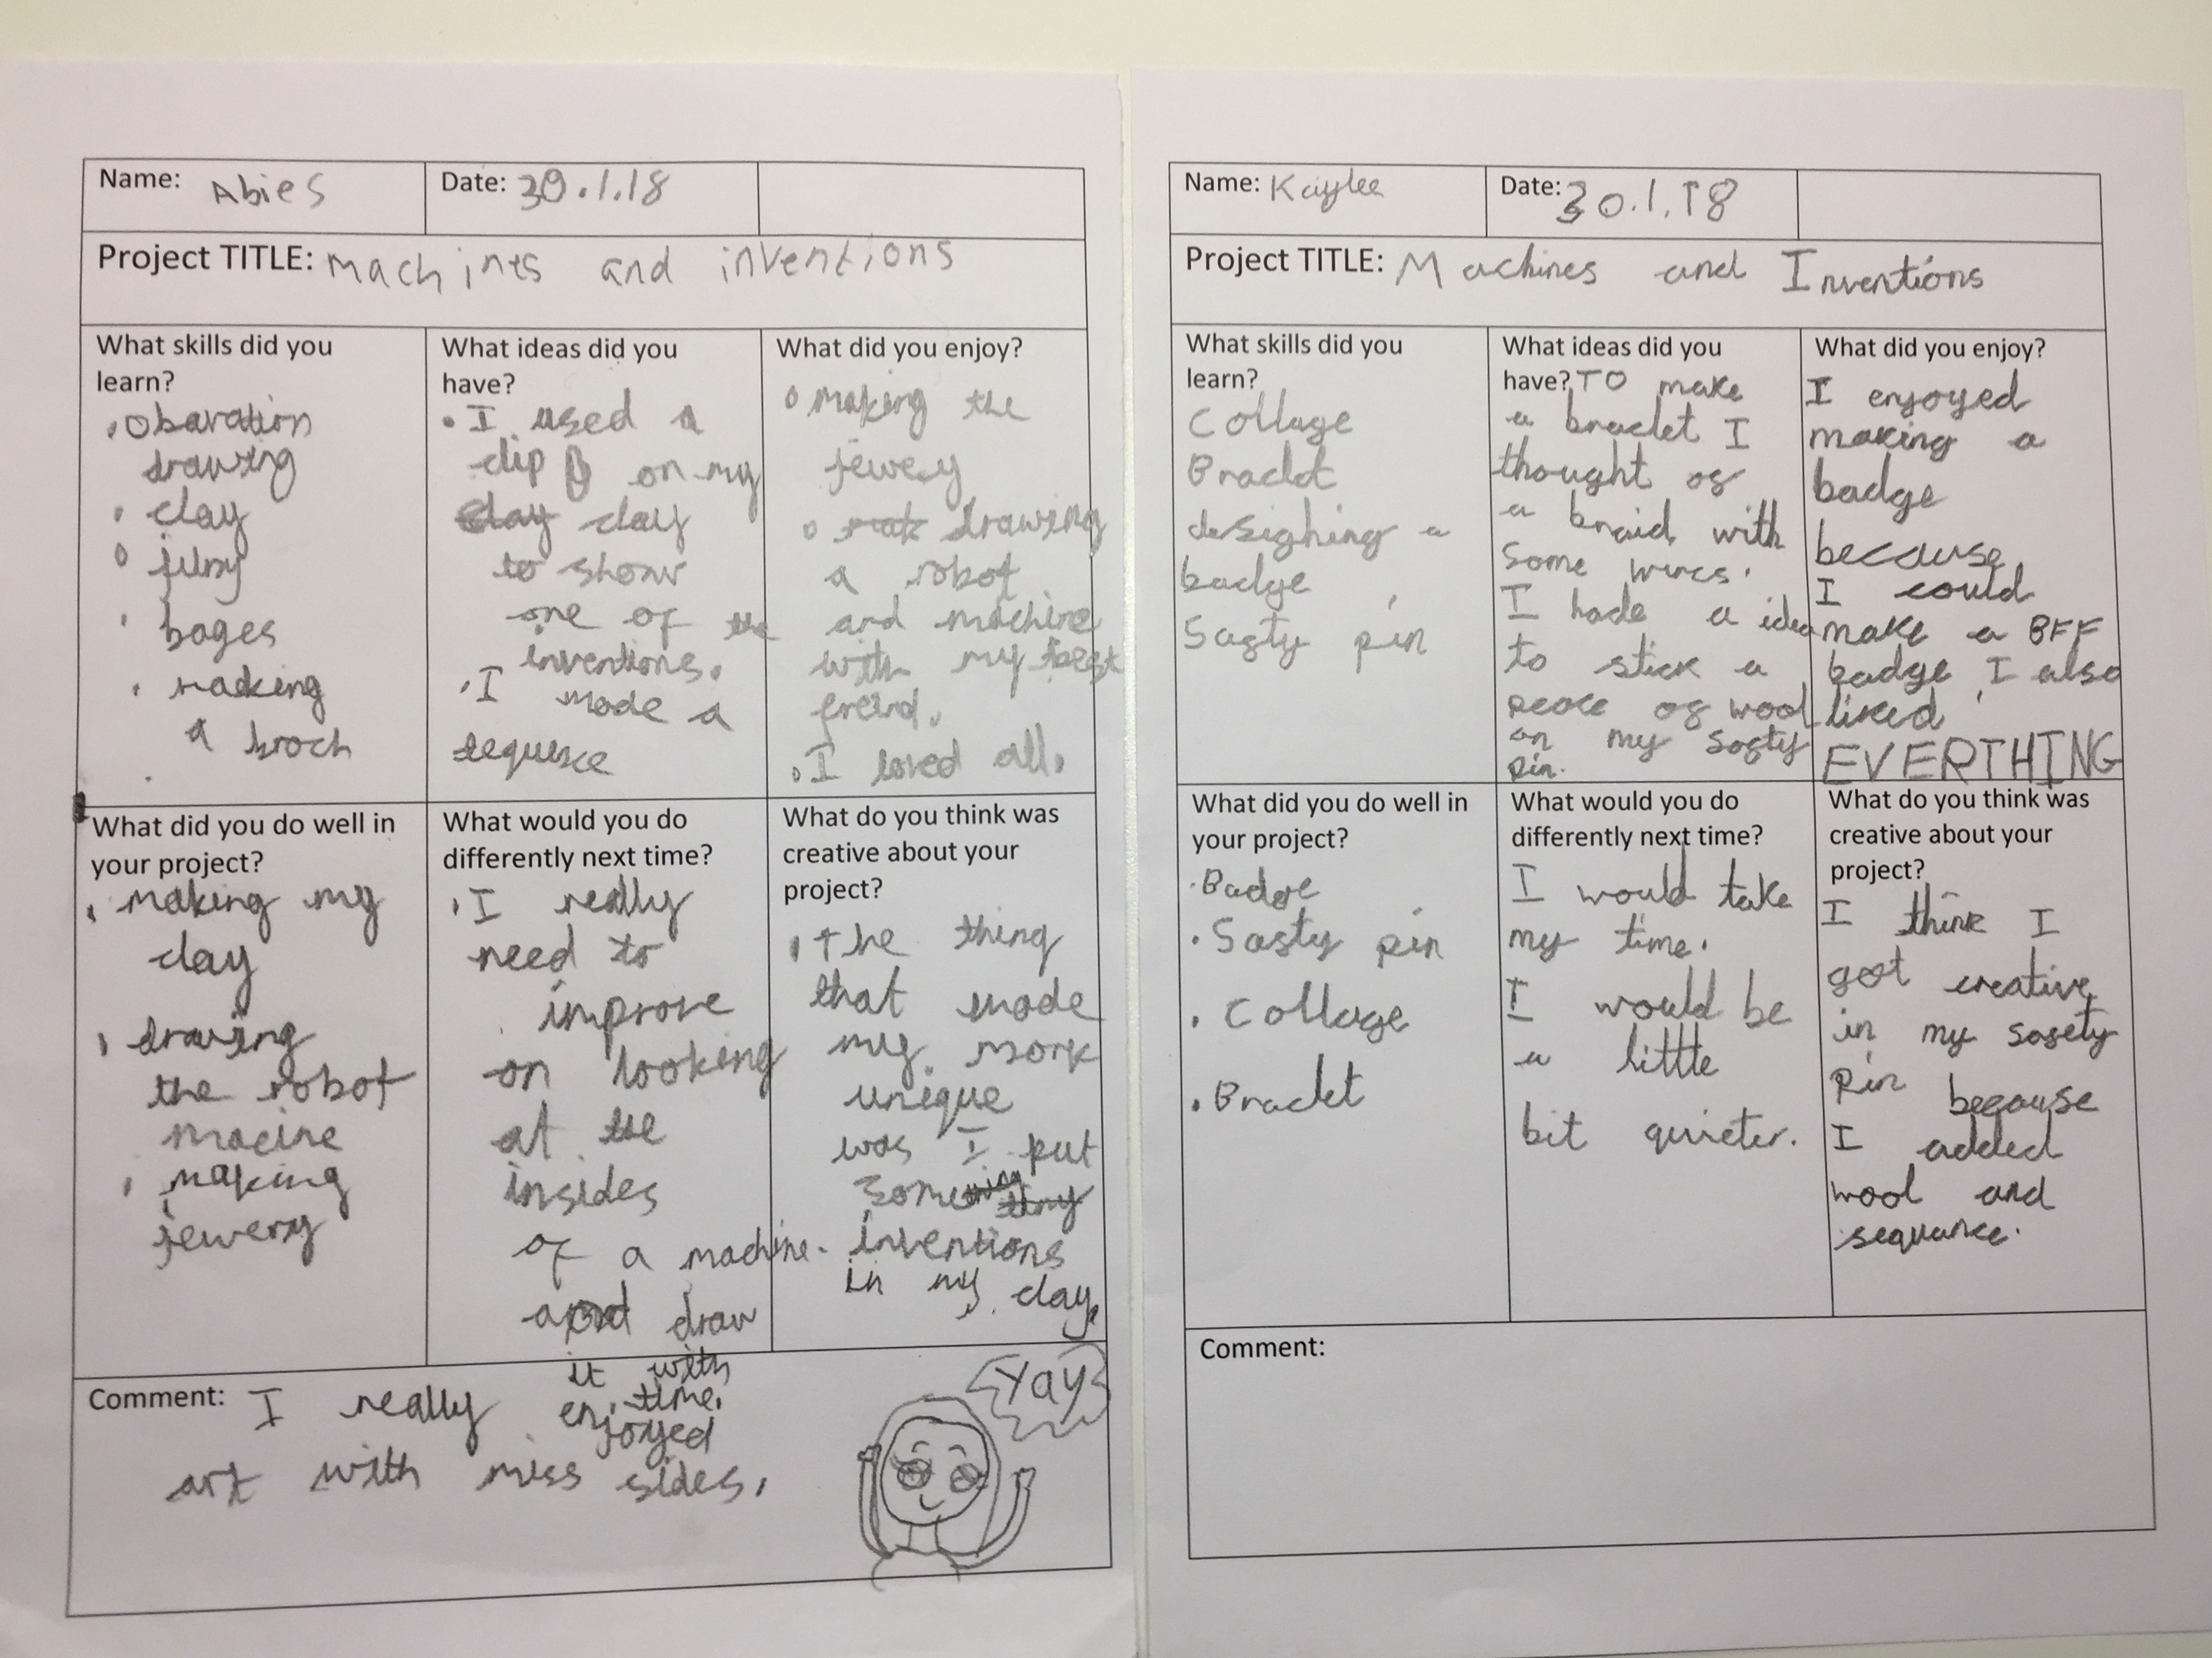 Name: Abies
Date: 30.1.18
Project TITLE: Machines and inventions
What skills did you
learn?
obaration
drawing
clay
bages
making
a broch
What ideas did you
have?
I used a
clip on my
clay clay
to show
one of the
inventions.
I made a
sequence
What did you enjoy?
making the
jewery
drawing
a robot
and machine
with my best
freind.
I loved all.
What did you do well in
your project?
making my
clay
drawing
the robot
macine
making
jewery
What would you do
differently next time?
I really
need to
improve
on looking
at the
insides
of a machine.
and draw
it with
time.
What do you think was
creative about your
project?
the thing
that made
my work
unique
was I put
some tiny
inventions
in my clay.
Comment: I really enjoyed
art with miss sides.
Yay
Name: Kaylee
Date: 30.1.18
Project TITLE: Machines and Inventions
What skills did you
learn?
Collage
Braclet
desighing a
badge
Safty pin
What ideas did you
have? TO make
a braclet I
thought of
a braid with
some wires.
I hade a idea
to stick a
peace of wool
on my safty
pin.
What did you enjoy?
I enjoyed
making a
badge
because
I could
make a BFF
badge I also
liked
EVERTHING
What did you do well in
your project?
Badge
Safty pin
Collage
Braclet
What would you do
differently next time?
I would take
my time.
I would be
a little
bit quieter.
What do you think was
creative about your
project?
I think I
got creative
in my safety
pin because
I added
wool and
sequance.
Comment: